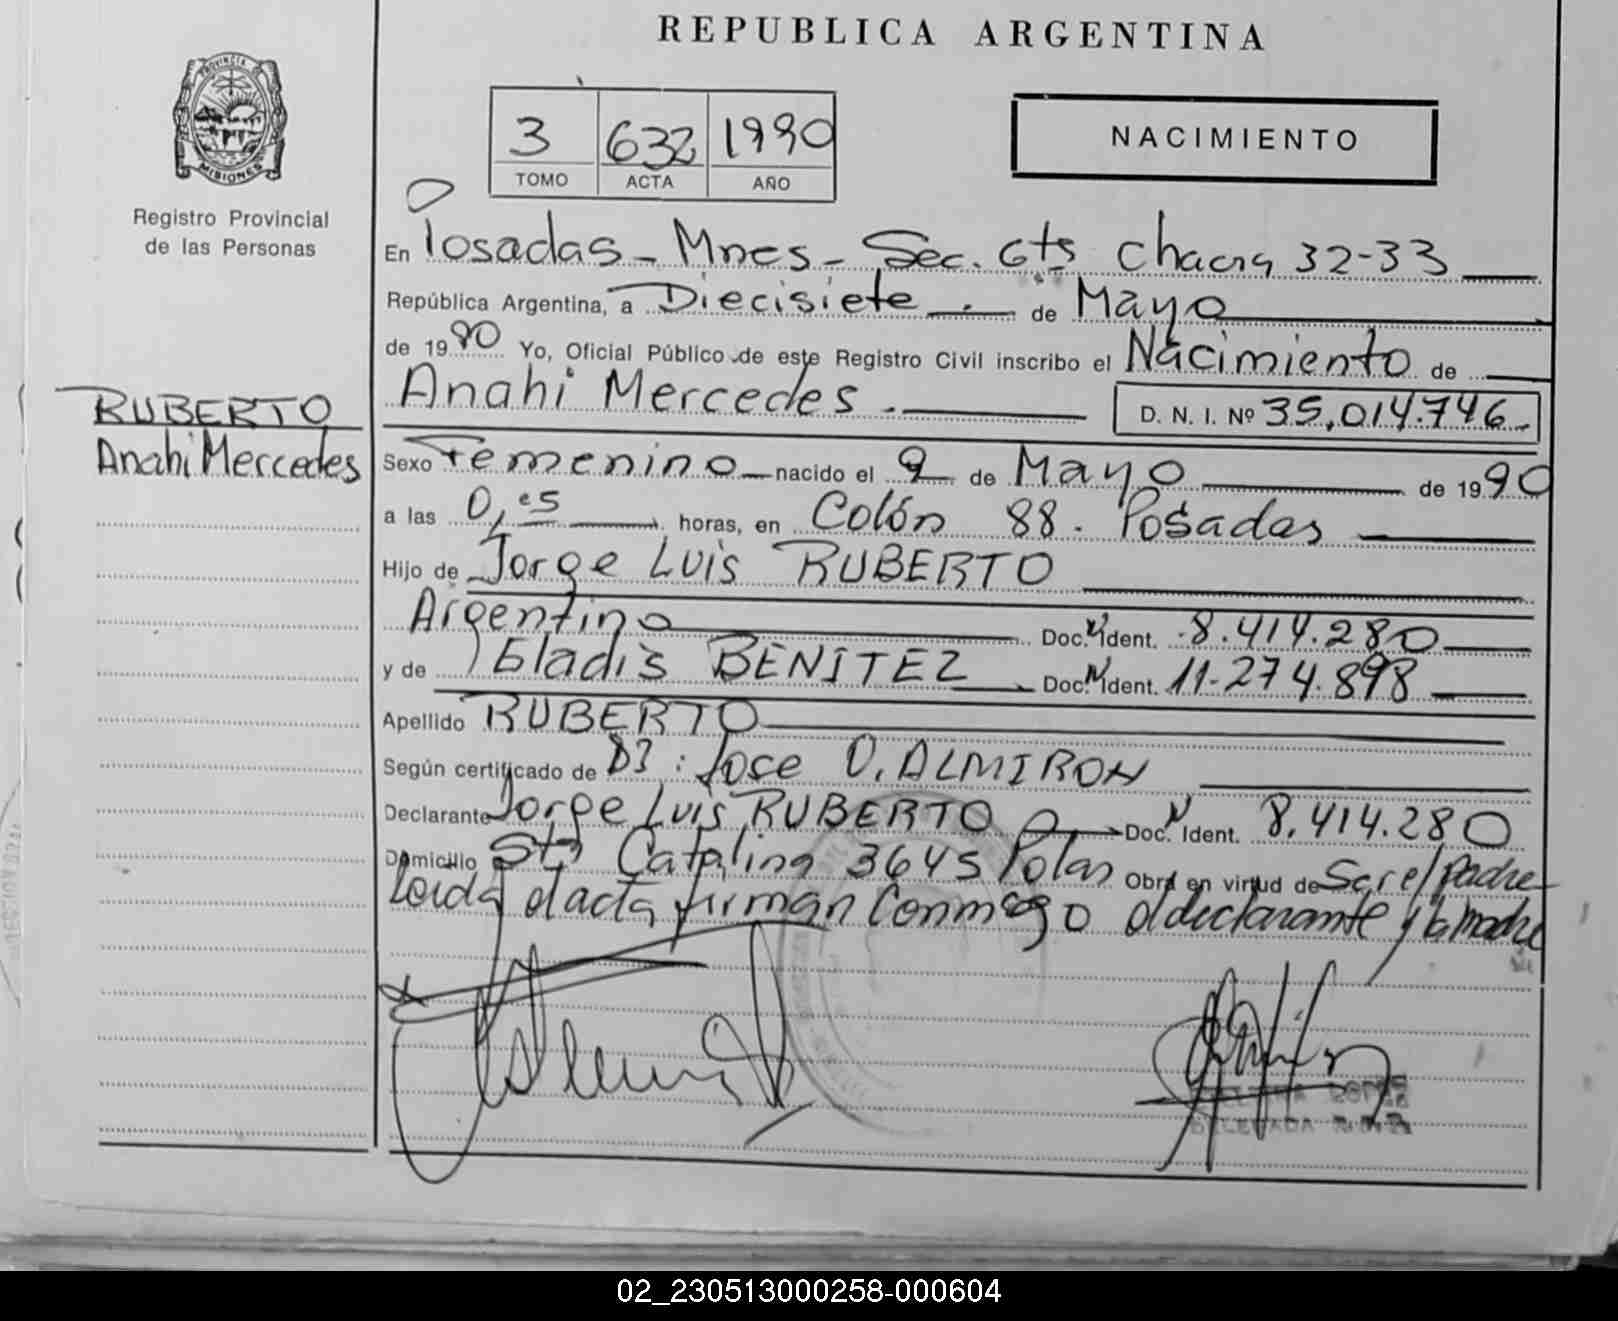 REPUBLICA ARGENTINA
PROVINCIA DE
MISIONES
Registro Provincial
de las Personas
3 632 1990
TOMO ACTA AÑO
NACIMIENTO
En Posadas - Mnes - Sec. 6ta Chacra 32-33
República Argentina, a Diecisiete de Mayo
de 1990 Yo, Oficial Público de este Registro Civil inscribo el Nacimiento de
Anahi Mercedes. D. N. I. Nº 35.014.746
RUBERTO
Anahi Mercedes
Sexo Femenino nacido el 9 de Mayo de 1990
a las 0,05 horas, en Colón 88. Posadas
Hijo de Jorge Luis RUBERTO
Argentino Doc. N Ident. 8.414.280
y de Gladis BENITEZ Doc. N Ident. 11.274.898
Apellido RUBERTO
Según certificado de Jose O. ALMIRON
Declarante Jorge Luis RUBERTO Doc. N Ident. 8.414.280
Domicilio Sta Catalina 3645 Obra en virtud de Ser el Padre
Leida el acta firman conmigo el declarante y la madre
DELEGADA
02_230513000258-000604